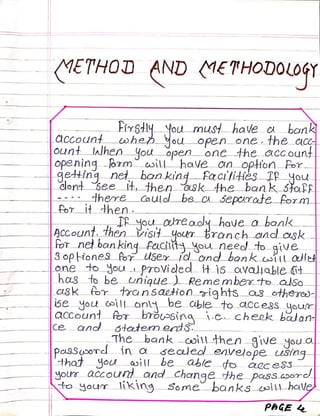 METHOD AND METHODOLOGY
Firstly you must have a bank
account when you open one. the acc-
ount When you open one the account
opening form will have an option for
getting net banking facilities If you
dont see it, then ask the bank staff
---- there could be a seperate form
for it then.
If you already have a bank
Account, then visit your branch and ask
for net banking facility you need to give
3 options for user id and bank will allot
one to you. provided it is available (it
has to be unique) Remember to also
ask for transaction rights as otherw-
ise you will only be able to access your
account for browsing i.e. check balan-
ce and statemends.
The bank will then give you a
password in a sealed envelope using
that you will be able to access
your account and change the password
to your liking Some banks will have
PAGE 4